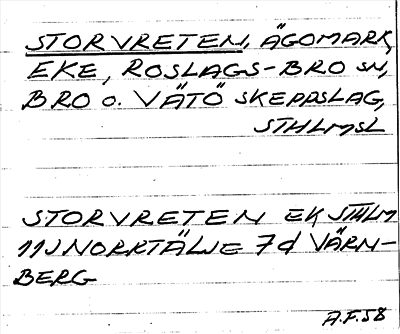 STORVRETEN, ÄGOMARK,
EKE, ROSLAGS-BRO SN,
BRO O. VÄTÖ SKEPPSLAG,
STHLMSL
STORVRETEN EK STHLM
11J NORRTÄLJE 7d VÄRN-
BERG
A.F. 58